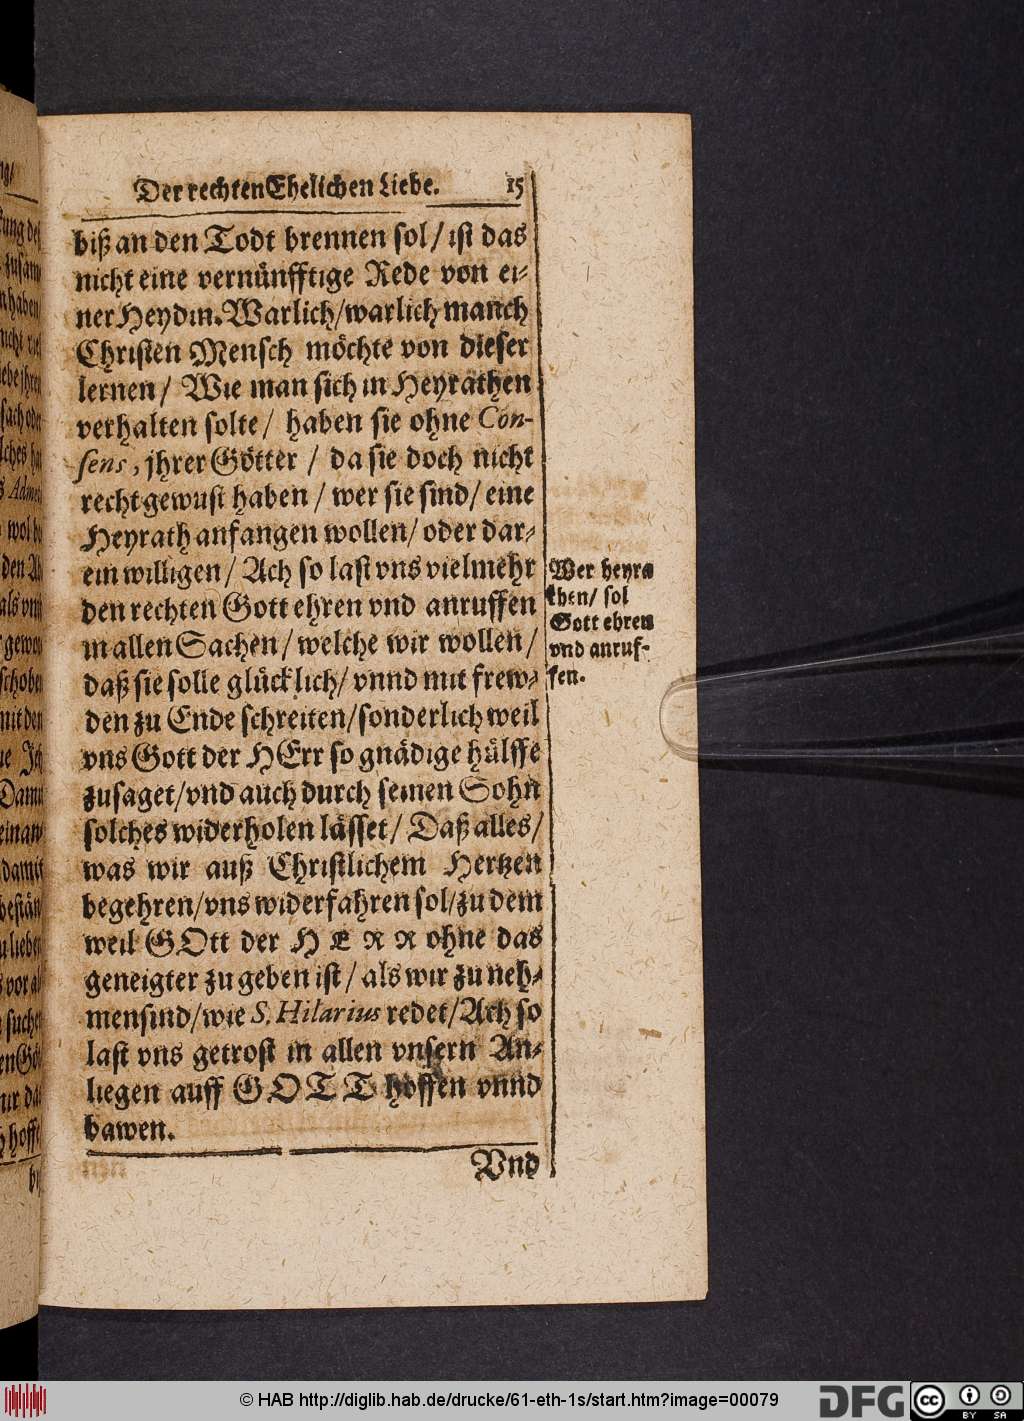 Der rechten Ehelichen Liebe. 15
biß an den Todt brennen sol/ ist das
nicht eine vernünfftige Rede von ei-
ner Heydin. Warlich/ warlich manch
Christen Mensch möchte von dieser
lernen/ Wie man sich in Heyrathen
verhalten solte/ haben sie ohne Con-
sens, jhrer Götter / da sie doch nicht
recht gewust haben / wer sie sind/ eine
Heyrath anfangen wollen/ oder dar-
ein willigen/ Ach so last vns vielmehr
den rechten Gott ehren vnd anruffen
in allen Sachen/ welche wir wollen/
daß sie solle glücklich/ vnnd mit frew-
den zu Ende schreiten/ sonderlich weil
vns Gott der HErr so gnädige hülffe
zusaget/ vnd auch durch seinen Sohn
solches widerholen lässet/ Daß alles/
was wir auß Christlichem Hertzen
begehren/ vns widerfahren sol/ zu dem
weil GOtt der HERR ohne das
geneigter zu geben ist/ als wir zu neh-
men sind/ wie S. Hilarius redet/ Ach so
last vns getrost in allen vnsern An-
liegen auff GOTT hoffen vnnd
bawen.
Vnd
Wer heyra
then/ sol
Gott ehren
vnd anruf-
fen.
© HAB http://diglib.hab.de/drucke/61-eth-1s/start.htm?image=00079
DFG
cc BY SA